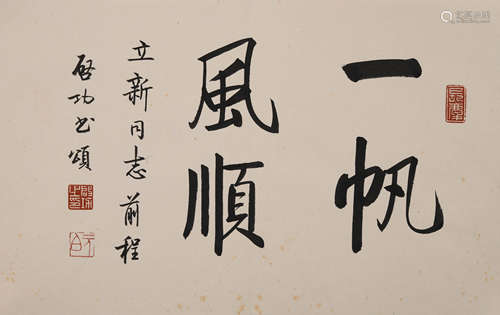 一帆
風順
立新同志前程
啓功書頌